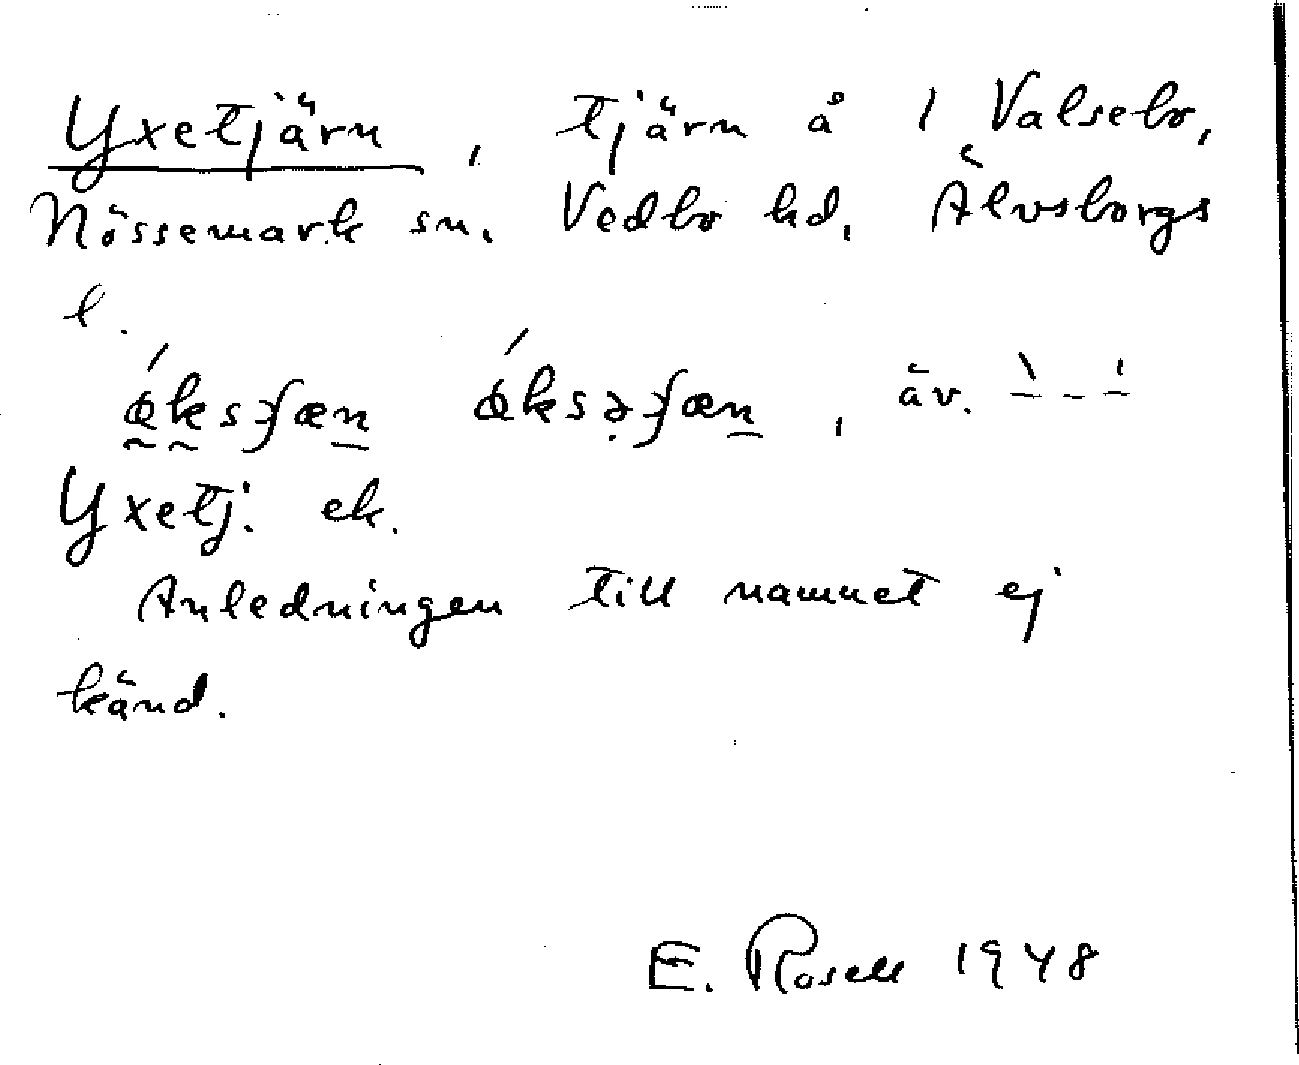 Yxetjärn, tjärn å 1 Valsebo,
Nössemark sn. Vedbo hd, Älvsborgs
l.
, äv.
Yxetj. ek.
Anledningen till namnet ej
känd.
E. Rosell 1948